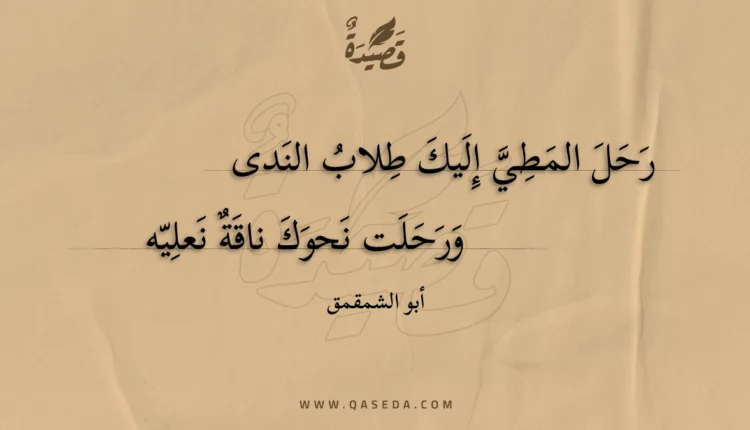 قَصِيدَةٌ
رَحَلَ المَطِيَّ إِلَيكَ طِلابُ النَدى
وَرَحَلَت نَحوَكَ ناقَةٌ نَعلِيّه
أبو الشمقمق
WWW.QASEDA.COM